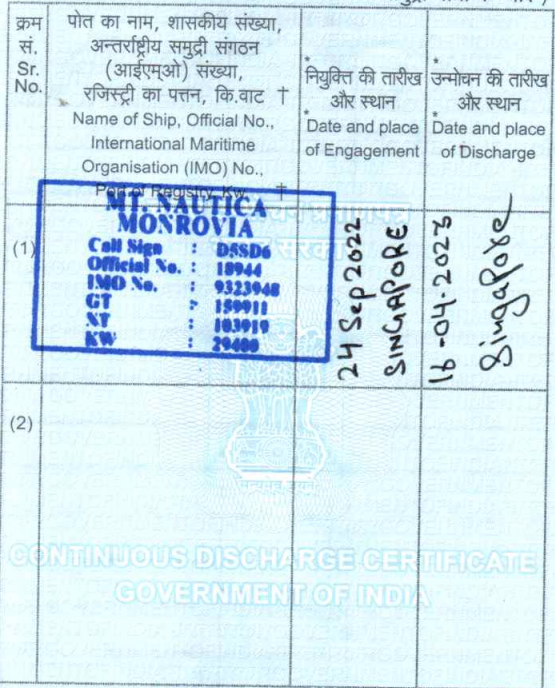 क्रम
सं.
Sr.
No.
पोत का नाम, शासकीय संख्या,
अन्तर्राष्ट्रीय समुद्री संगठन
(आईएमओ) संख्या,
रजिस्ट्री का पत्तन, कि.वाट †
Name of Ship, Official No.,
International Maritime
Organisation (IMO) No.,
Port of Registry, Kw. †
*
नियुक्ति की तारीख
और स्थान
*
Date and place
of Engagement
*
उन्मोचन की तारीख
और स्थान
*
Date and place
of Discharge
(1)
MT. NAUTICA
MONROVIA
Call Sign : D5SD6
Official No. : 18944
IMO No. : 9323948
GT : 159911
NT : 103919
KW : 29400
24 Sep 2022
SINGAPORE
16-04-2023
Singapore
(2)
CONTINUOUS DISCHARGE CERTIFICATE
GOVERNMENT OF INDIA